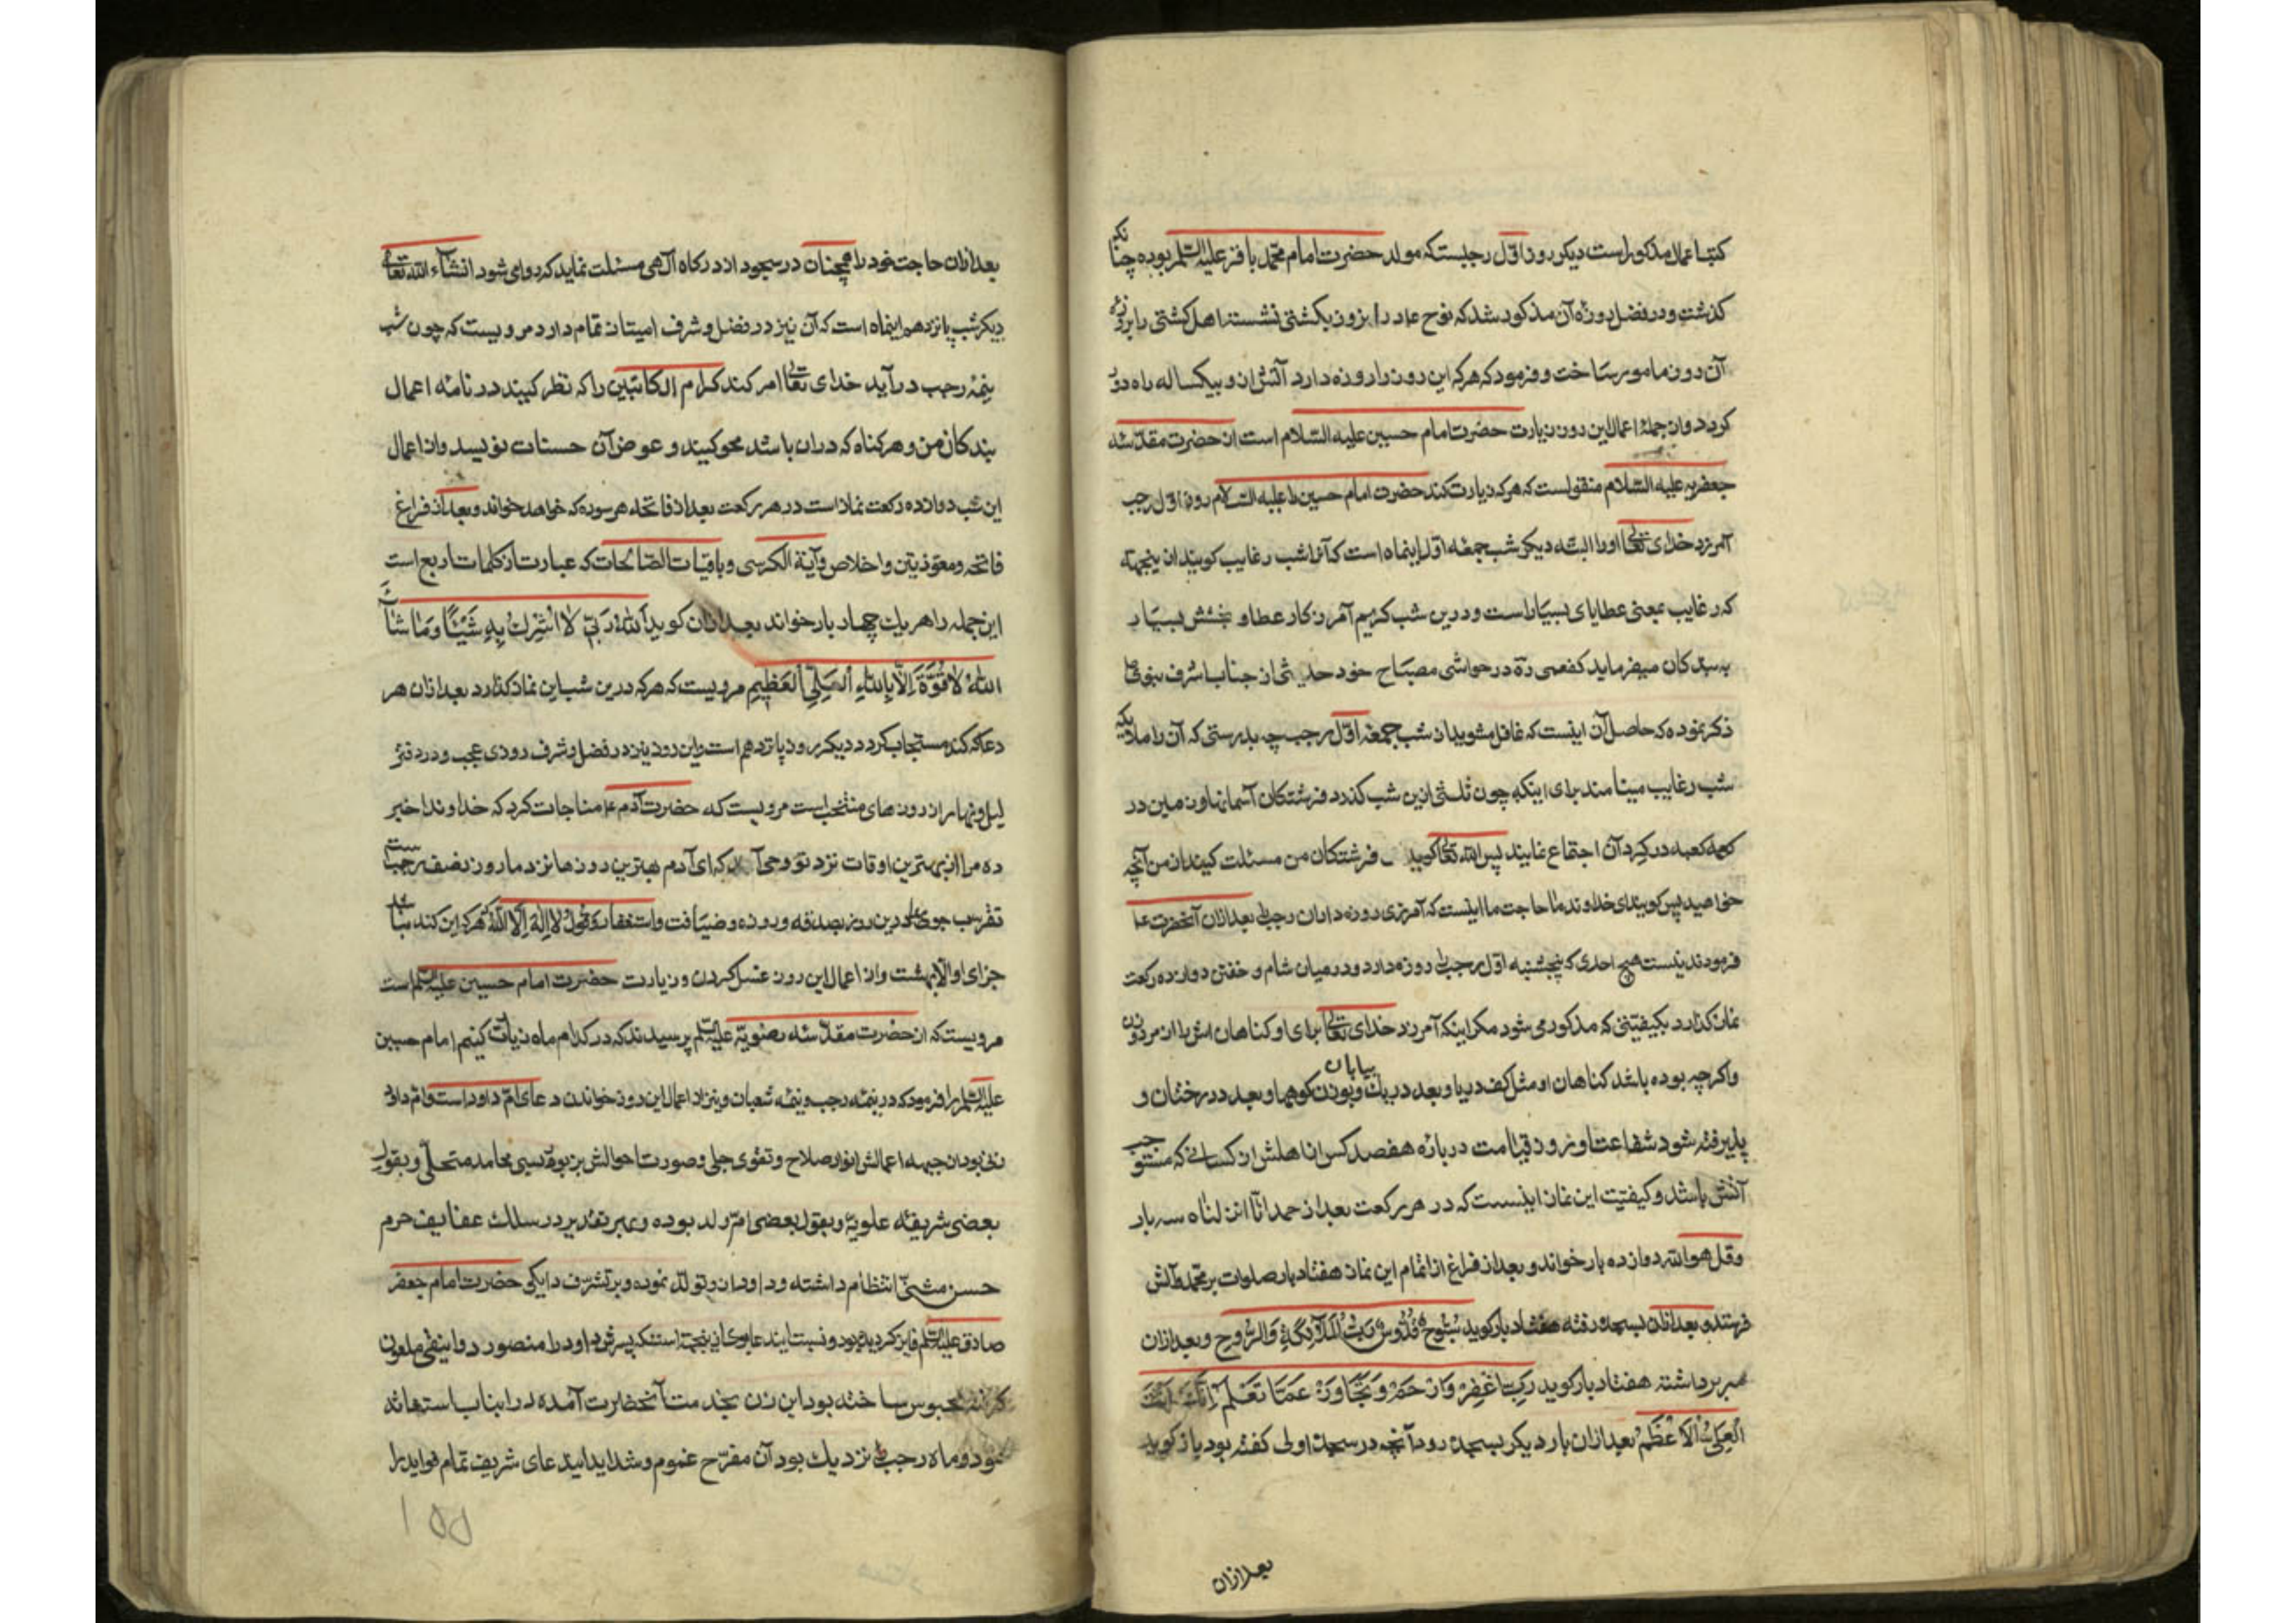 کتب اعمال مذکور است دیکر روز اول رجبست که مولد حضرت امام محمد باقر علیه السلم بوده چنانکه
کذشت و در فضل روزه آن مذکور شد که نوح ع در این روز بکشتی نشسته اهل کشتی را بروزه
آن روز مامور ساخت و فرمود که هر که این روز را روزه دارد آتش ازو بیکساله راه دور
کردد و از جملهٔ اعمال این روز زیارت حضرت امام حسین علیه السلام است از حضرت مقدسه
جعفریه علیه السلام منقولست که هر که زیارت کند حضرت امام حسین را علیه السلام روز اول رجب
آمرزد خدای تعالی او را البته دیکر شب جمعهٔ اول اینماه است که آنرا شب رغایب کویند از ینجهة
که رغایب بمعنی عطایای بسیار است و درین شب کریم آمرزکار عطا و بخشش بسیار
به بندکان میفرماید کفعمی ره در حواشی مصباح خود حدیثی از جناب اشرف نبوی ص
ذکر نموده که حاصل آن اینست که غافل مشوید از شب جمعهٔ اول رجب چه بدرستی که آن را ملایکه
شب رغایب مینامند برای اینکه چون ثلثی ازین شب کذرد فرشتکان آسمانها و زمین در
کعبه در کرد آن اجتماع نمایند پس الله تعالی کوید فرشتکان من مسئلت کنید از من آنچه
خواهید پس کویند ای خداوند ما حاجت ما اینست که آمرزی روزه داران رجب را بعد ازان آنحضرت ع
فرمودند نیست هیچ احدی که پنجشنبه اول رجب را روزه دارد و در میان شام و خفتن دوازده رکعت
نماز کذارد بکیفیتی که مذکور می شود مکر اینکه آمرزد خدای تعالی برای او کناهان اش را
واکرچه بوده باشد کناهان او مثل کف دریا و بعدد ریک بیابان و بوزن کوهها و بعدد درختان و
پذیرفته شود شفاعت او روز قیامت در بارهٔ هفصد کس از اهلش از کسانی که مستوجب
آتش باشند و کیفیت این نماز اینست که در هر رکعت بعد از حمد انا انزلناه سه بار
وقل هو الله دوازده بار خواند و بعد از فراغ از اتمام این نماز هفتاد بار صلوات بر محمد و آلش
فرستد و بعد ازان بسجده رفته هفتاد بار کوید سُبُّوحٌ قُدُّوسٌ رَبُّ الْمَلَآئِکَةِ وَالرُّوحِ و بعد ازان
سر برداشته هفتاد بار کوید رَبِّ اغْفِرْ وَارْحَمْ وَتَجَاوَزْ عَمَّا تَعْلَمُ اِنَّكَ اَنْتَ
الْعَلِیُّ الْاَعْظَمُ بعد ازان بار دیکر بسجده رود آنچه در سجدهٔ اولی کفته بود باز کوید
بعد ازان
بعد ازان حاجت خود را همچنان در سجود از درکاه آلهی مسئلت نماید که روا می شود انشآء الله تعالی
دیکر شب پانزدهم اینماه است که آن نیز در فضل و شرف امتیاز تمام دارد مرویست که چون شب
نیمهٔ رجب درآید خدای تعالی امر کند کرام الکاتبین را که نظر کنید در نامهٔ اعمال
بندکان من و هر کناه که دران باشد محو کنید و عوض آن حسنات نویسید و از اعمال
این شب دوازده رکعت نماز است در هر رکعت بعد از فاتحه هر سوره که خواهد خواند و بعد از فراغ
فاتحه و معوذتین و اخلاص و آیة الکرسی و باقیات الصالحات که عبارت از کلمات اربع است
این جمله را هر یك چهار بار خواند بعد ازان کوید اَللّٰهُ رَبّی لا اُشْرِكُ بِهِ شَیْئًا وَمَا شَآءَ
اللّٰهُ لَا قُوَّةَ اِلَّا بِاللّٰهِ الْعَلِیِّ الْعَظیِمِ مرویست که هر که درین شب این نماز کذارد بعد ازان هر
دعا که کند مستجاب کردد دیکر روز پانزدهم است و این روز نیز در فضل و شرف روزی عجب و در دفتر
لیل و نهار از روزهای منتخب است مرویست که حضرت آدم ع مناجات کرد که خداوندا خبر
ده مرا از بهترین اوقات نزد تو وحی آمد که ای آدم بهترین روزها نزد ما روز نصف رجب است
تقرب جوی درین روز بصدقه و روزه و ضیافت و استغفار و قول لا اِلٰهَ اِلَّا اللّٰه هر که این کند نباشد
جزای او الا بهشت و از اعمال این روز غسل کردن و زیارت حضرت امام حسین علیه السلم است
مرویست که از حضرت مقدسهٔ رضویه علیه السلم پرسیدند که در کدام ماه زیارت کنیم امام حسین
علیه السلم را فرمود که در نیمهٔ رجب و نیمهٔ شعبان و نیز از اعمال این روز خواندن دعای ام داود است و ام داود
زنی بود از جبههٔ اعمالش انوار صلاح و تقوی جلی و صورت احوالش بزیور محامد متحلی و بقول
بعضی شریفهٔ علویه و بقول بعضی ام ولد بوده و بهر تقدیر در سلك عفایف حرم
حسن مثنی انتظام داشته و داود ازو تولد نموده و بتشرف دایکی حضرت امام جعفر
صادق علیه السلم فایز کردیده بود پسرش داود را منصور دوانیقی ملعون
کرفته محبوس ساخته بود این زن بخدمت آنحضرت آمده در این باب استغاثه
نمود و ماه رجب نزدیك بود آن مفرح غموم و شداید این دعای شریف تمام فواید را
۱۵۵